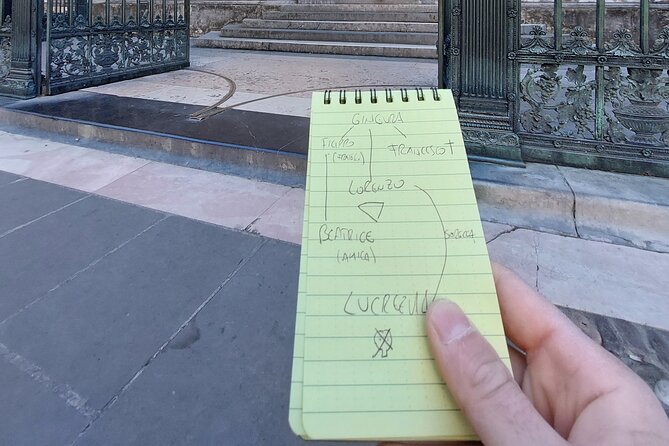 GINEVRA
FILIPPO
FRANCESCO†
LORENZO
BEATRICE
SORELLA
(AMICA)
LUCREZIA